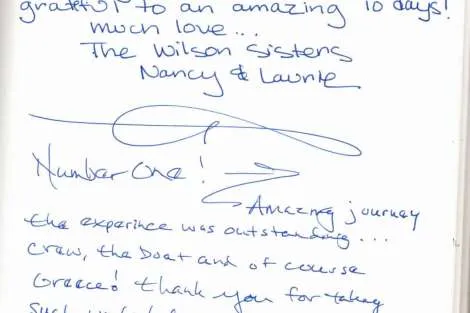 grateful to an amazing 10 days!
much love...
The Wilson Sisters
Nancy & Laurie
Number One!
Amazing journey
the experince was outstanding...
crew, the boat and of course
Greece! thank you for taking
such